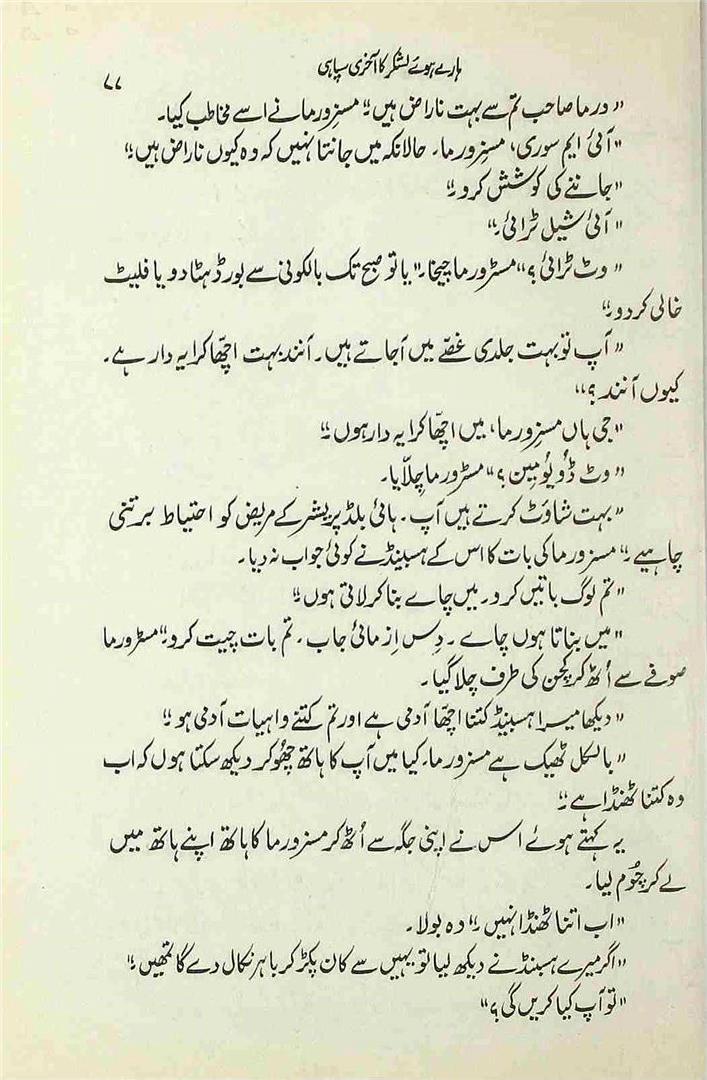 ہارے ہوئے لشکر کا آخری سپاہی
۷۷
”ورما صاحب تم سے بہت ناراض ہیں۔“ مسز ورما نے اسے مخاطب کیا۔
”آئی ایم سوری، مسز ورما۔ حالانکہ میں جانتا نہیں کہ وہ کیوں ناراض ہیں۔“
”جاننے کی کوشش کرو۔“
”آئی شیل ٹرائی۔“
”وٹ ٹرائی؟“ مسٹر ورما چیخا۔ ”یا تو صبح تک بالکونی سے بورڈ ہٹا دو یا فلیٹ
خالی کر دو۔“
”آپ تو بہت جلدی غصّے میں آجاتے ہیں۔ آنند بہت اچھّا کرایہ دار ہے۔
کیوں آنند؟“
”جی ہاں مسز ورما، میں اچھّا کرایہ دار ہوں۔“
”وٹ ڈُو یُو مِین؟“ مسٹر ورما چِلّایا۔
”بہت شاؤٹ کرتے ہیں آپ۔ ہائی بلڈ پریشر کے مریض کو احتیاط برتنی
چاہیے۔“ مسز ورما کی بات کا اس کے ہسبینڈ نے کوئی جواب نہ دیا۔
”تم لوگ باتیں کرو۔ میں چاے بنا کر لاتی ہوں۔“
”میں بناتا ہوں چاے۔ دِس اِز مائی جاب۔ تم بات چیت کرو۔“ مسٹر ورما
صوفے سے اُٹھ کر کچن کی طرف چلا گیا۔
”دیکھا میرا ہسبینڈ کتنا اچھّا آدمی ہے اور تم کتنے واہیات آدمی ہو۔“
”بالکل ٹھیک ہے مسز ورما۔ کیا میں آپ کا ہاتھ چھُو کر دیکھ سکتا ہوں کہ اب
وہ کتنا ٹھنڈا ہے۔“
یہ کہتے ہوئے اس نے اپنی جگہ سے اُٹھ کر مسز ورما کا ہاتھ اپنے ہاتھ میں
لے کر چُوم لیا۔
”اب اتنا ٹھنڈا نہیں۔“ وہ بولا۔
”اگر میرے ہسبینڈ نے دیکھ لیا تو یہیں سے کان پکڑ کر باہر نکال دے گا تمھیں۔“
”تو آپ کیا کریں گی؟“